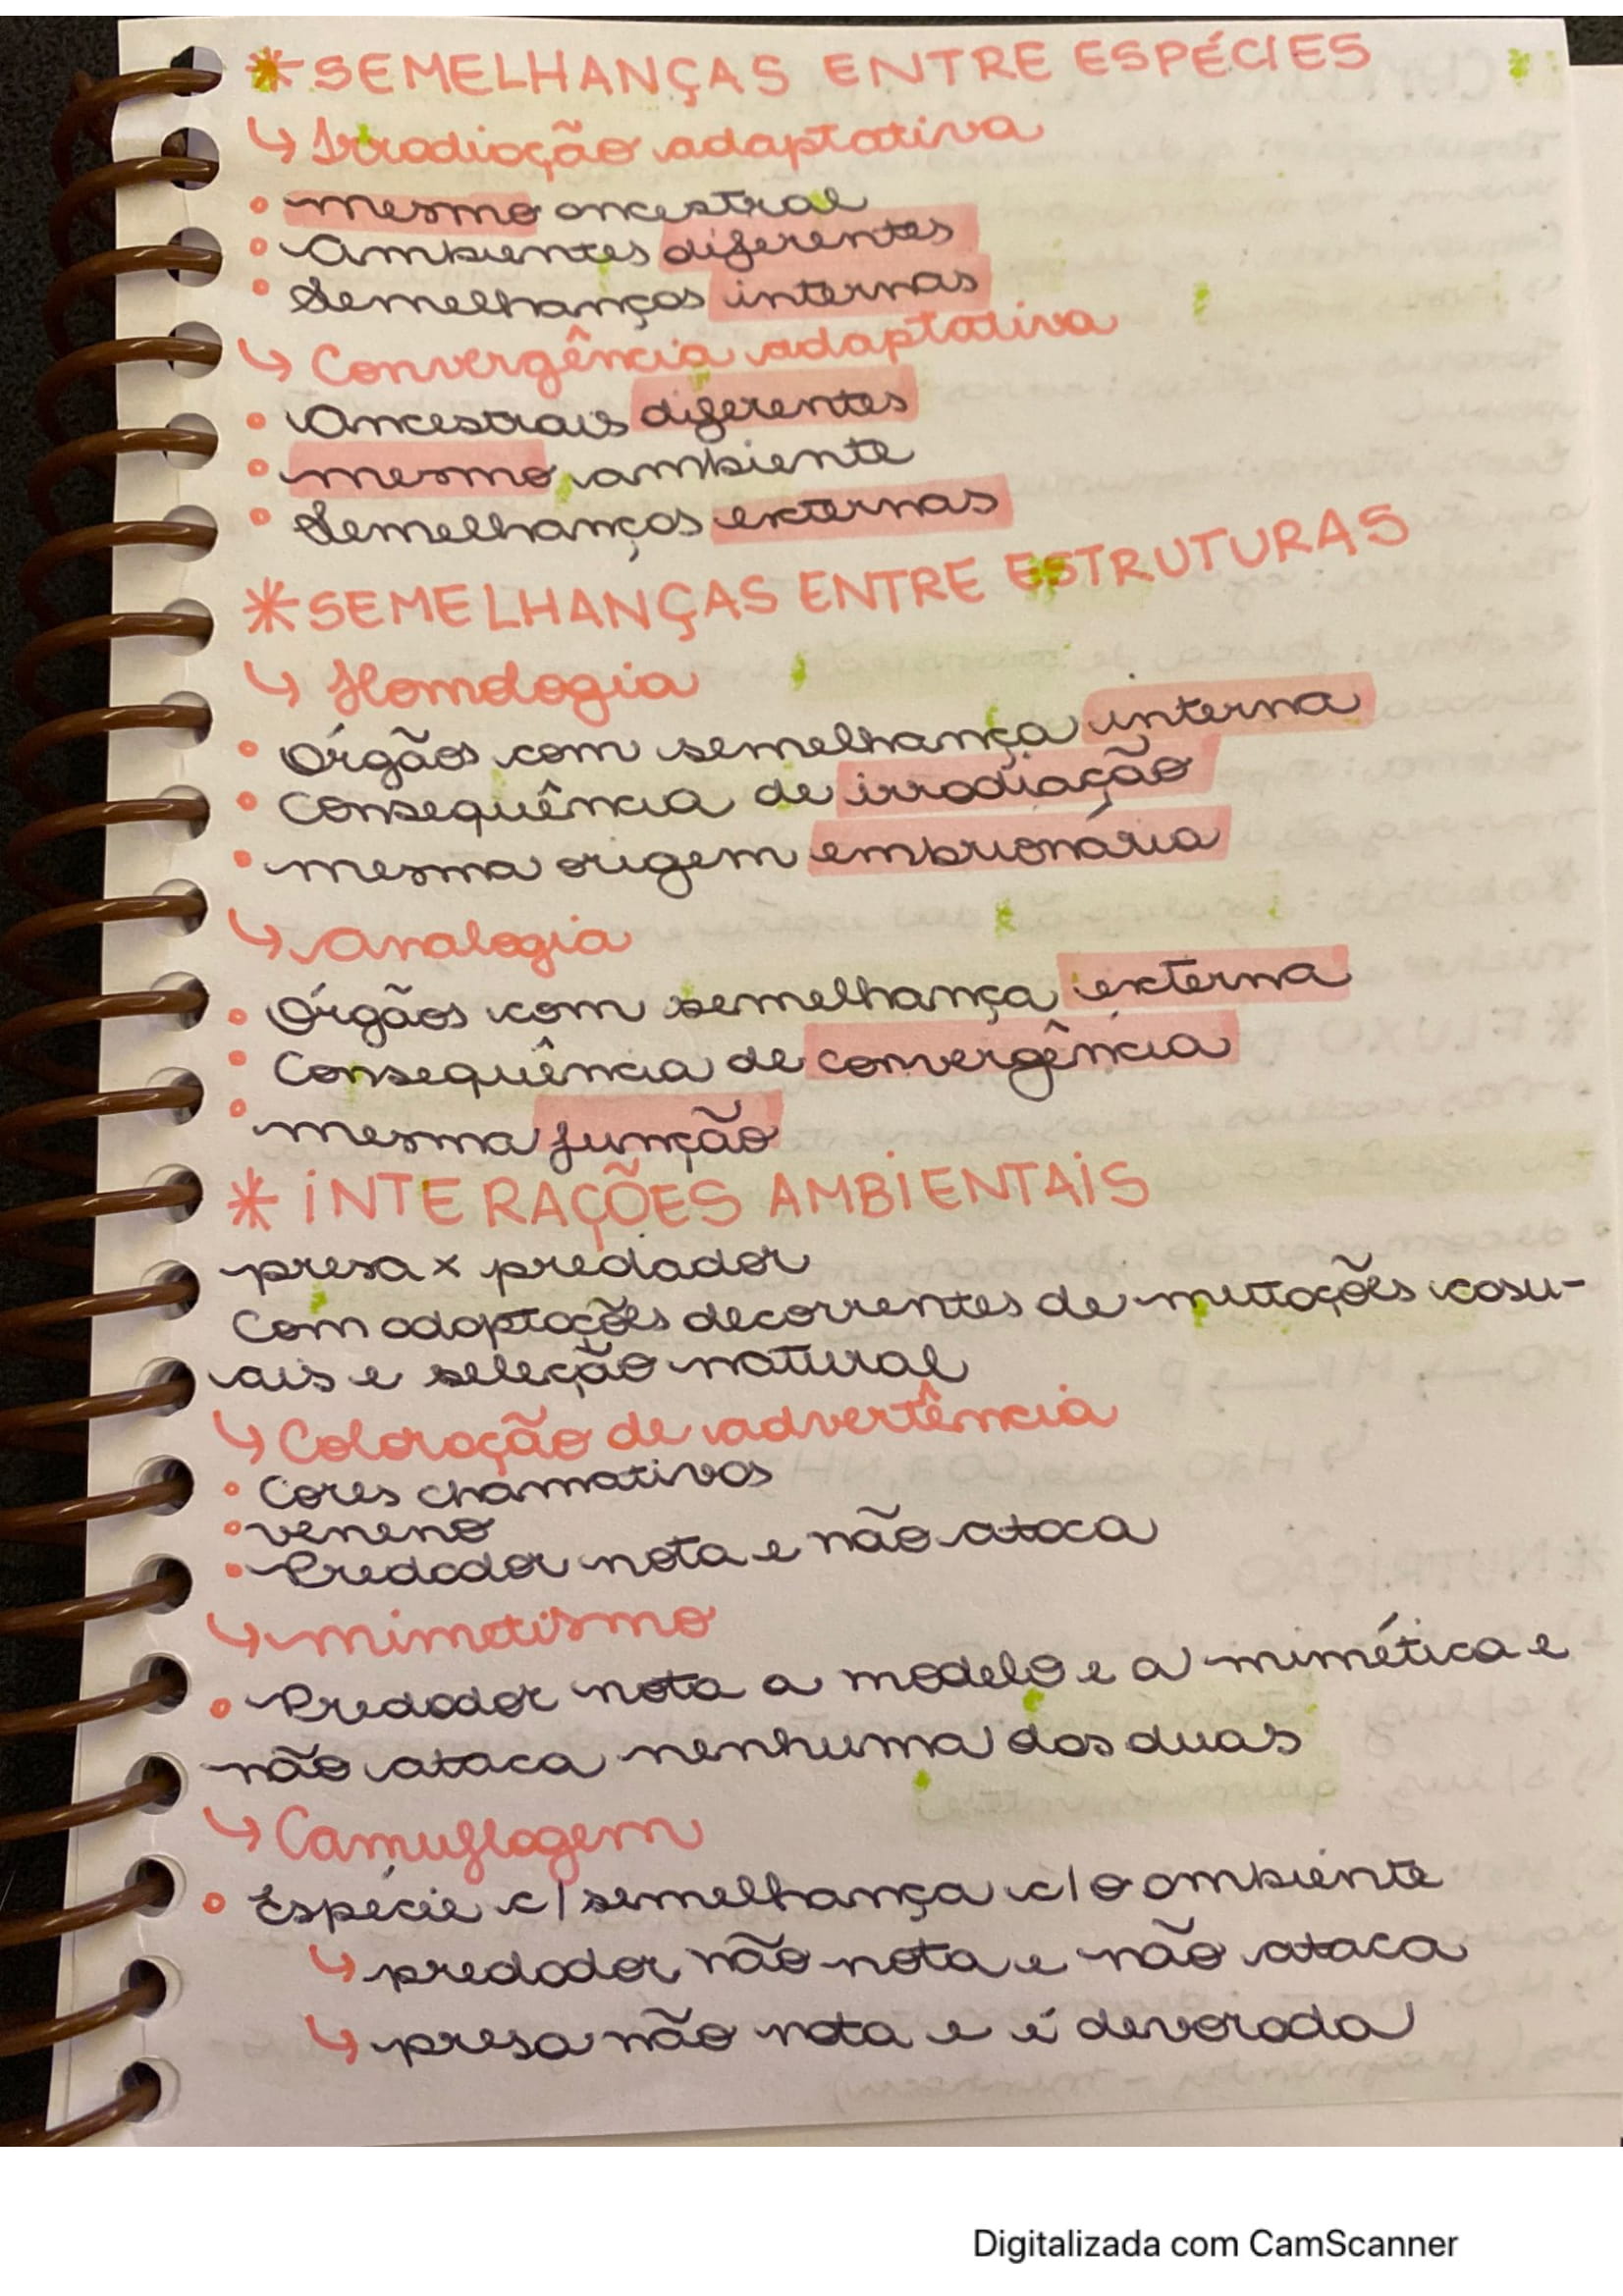 *SEMELHANÇAS ENTRE ESPÉCIES
↳ Irradiação adaptativa
• mesmo ancestral
• Ambientes diferentes
• Semelhanças internas
↳ Convergência adaptativa
• Ancestrais diferentes
• mesmo ambiente
• Semelhanças externas
*SEMELHANÇAS ENTRE ESTRUTURAS
↳ Homologia
• Órgãos com semelhança interna
• Consequência de irradiação
• mesma origem embrionária
↳ Analogia
• Órgãos com semelhança externa
• Consequência de convergência
• mesma função
* INTERAÇÕES AMBIENTAIS
presa x predador
Com adaptações decorrentes de mutações casu-
ais e seleção natural
↳ Coloração de advertência
• Cores chamativas
• veneno
• Predador nota e não ataca
↳ mimetismo
• Predador nota a modelo e a mimética e
não ataca nenhuma das duas
↳ Camuflagem
• Espécie c/ semelhança c/ o ambiente
↳ predador não nota e não ataca
↳ presa não nota e é devorada
Digitalizada com CamScanner